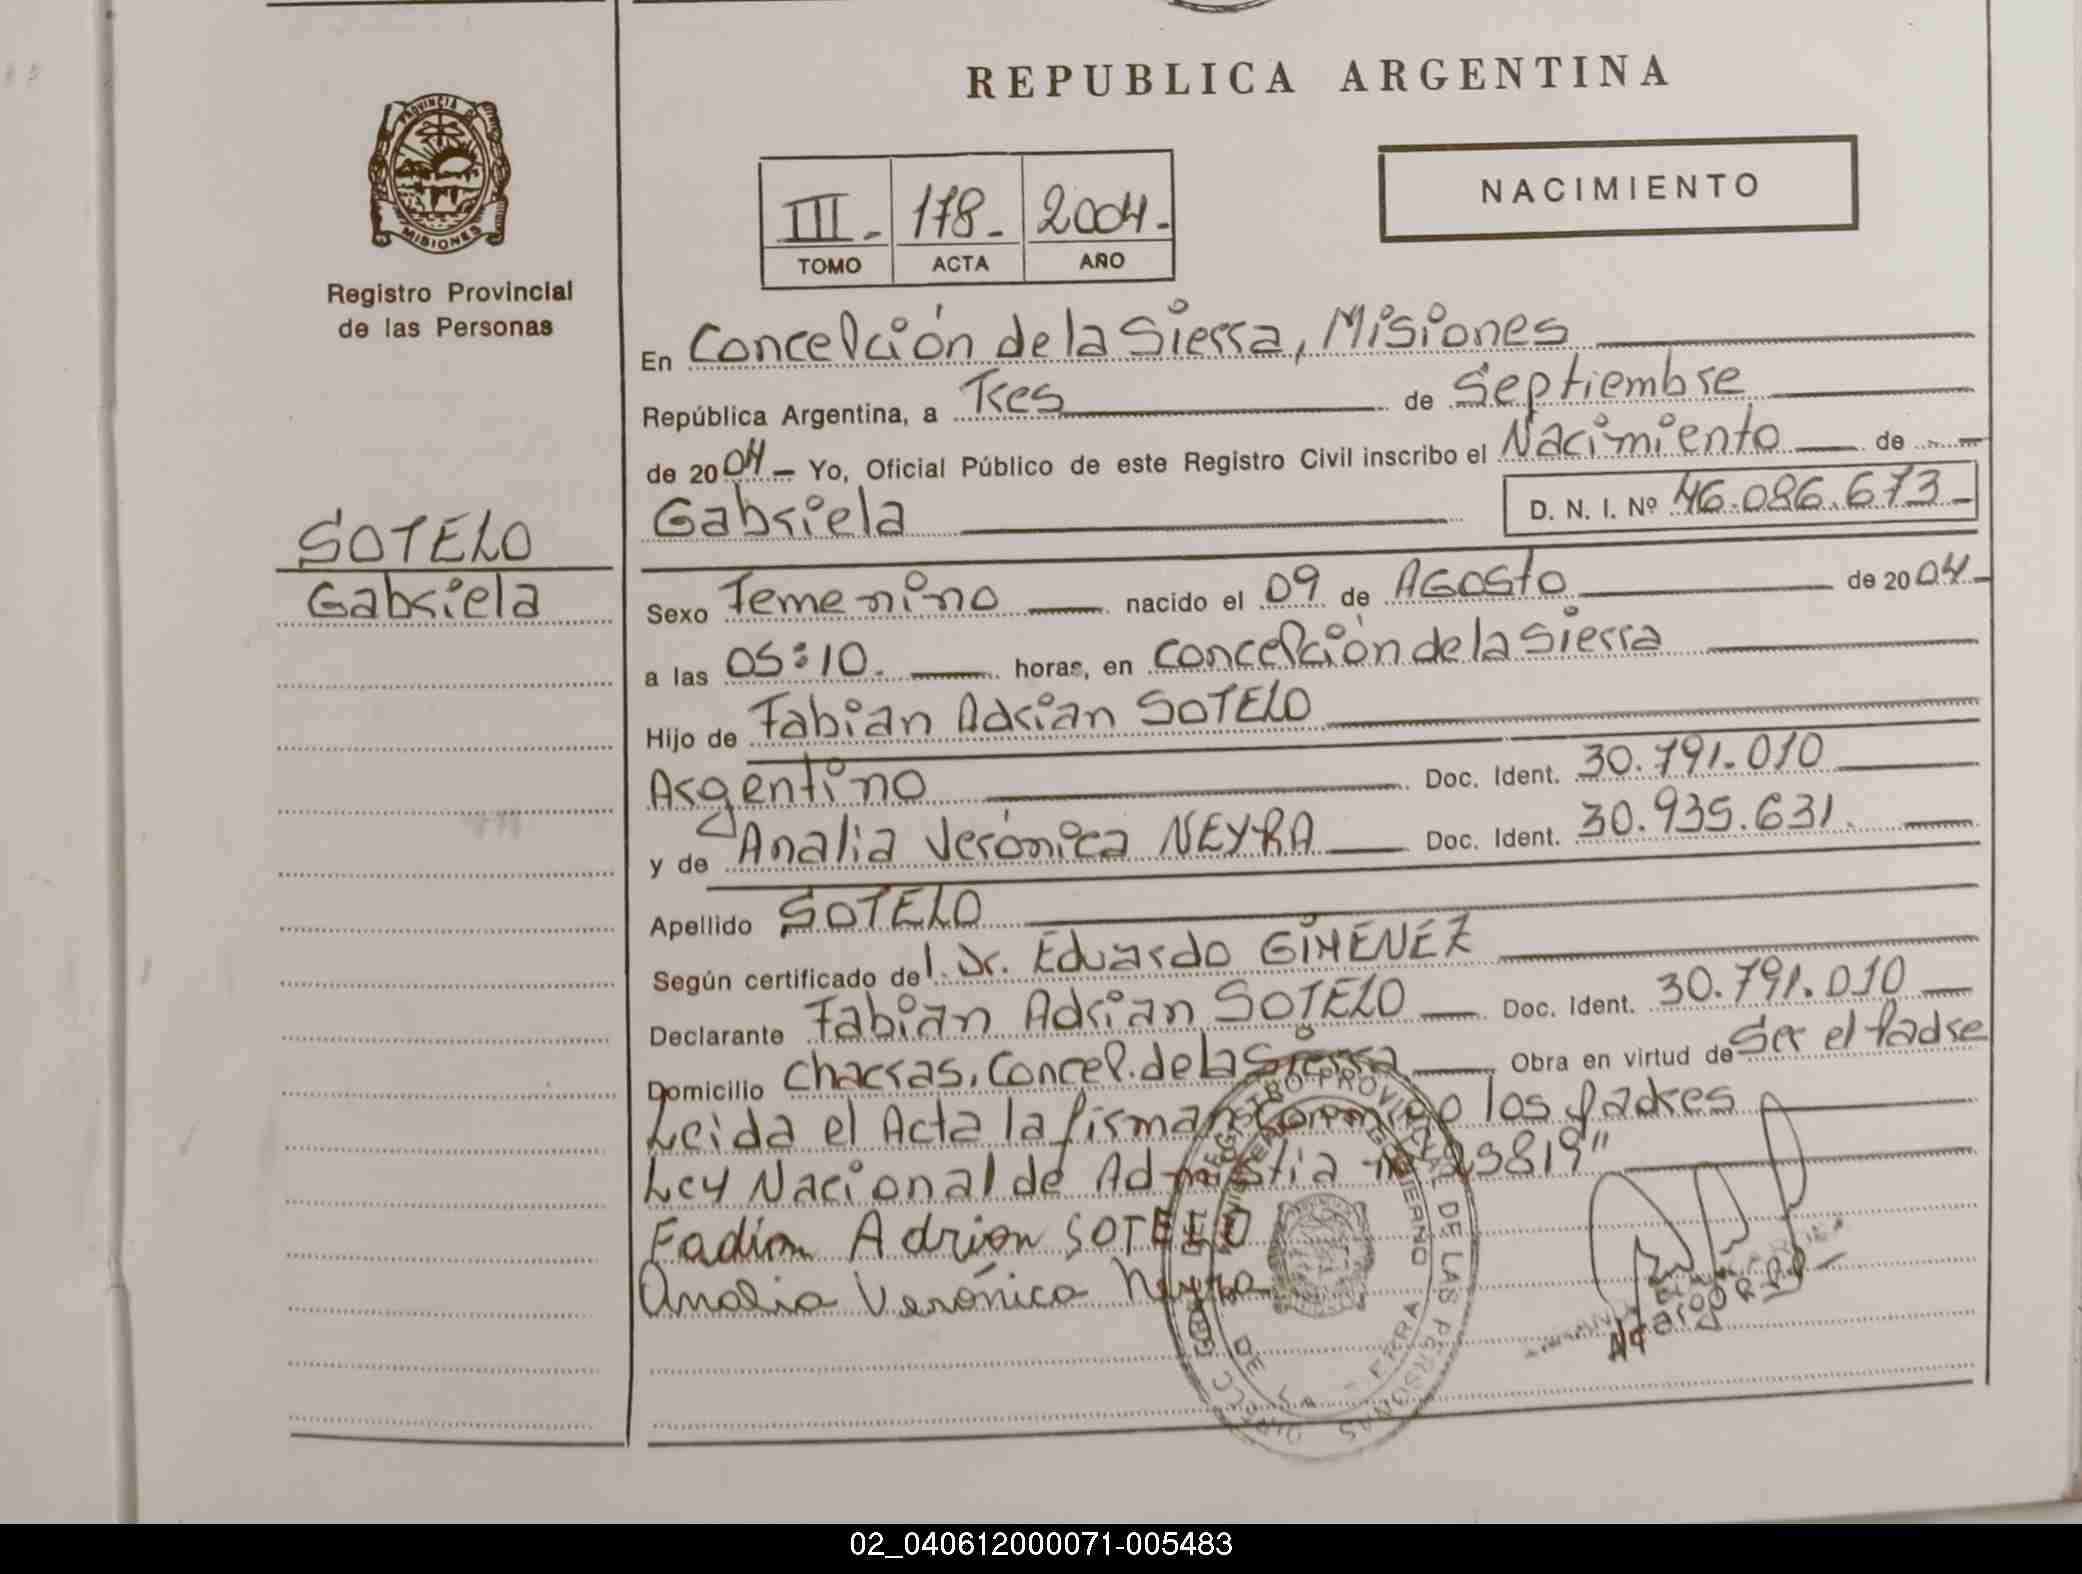 REPUBLICA ARGENTINA
PROVINCIA
MISIONES
Registro Provincial
de las Personas
NACIMIENTO
III- 178- 2004-
TOMO ACTA AÑO
En Concepción de la Sierra, Misiones
República Argentina, a Tres de Septiembre
de 2004 - Yo, Oficial Público de este Registro Civil inscribo el Nacimiento de
Gabriela D. N. I. Nº 46.086.673-
SOTELO
Gabriela
Sexo Femenino nacido el 09 de Agosto de 2004-
a las 05:10. horas, en Concepción de la Sierra
Hijo de Fabian Adrian SOTELO
Argentino Doc. Ident. 30.791.010
y de Analia Verónica NEYRA Doc. Ident. 30.935.631.
Apellido SOTELO
Según certificado del. Dr. Eduardo GIMENEZ
Declarante Fabian Adrian SOTELO Doc. Ident. 30.791.010
Domicilio Chacras, Concep. de la Sierra Obra en virtud de Ser el Padre
Leida el Acta la firman conmigo los Padres
Ley Nacional de Admistia 23819"
Fadian Adrian SOTELO
Analia Verónica Neyra
REGISTRO PROVINCIAL DE LAS PERSONAS
DE LA
02_040612000071-005483